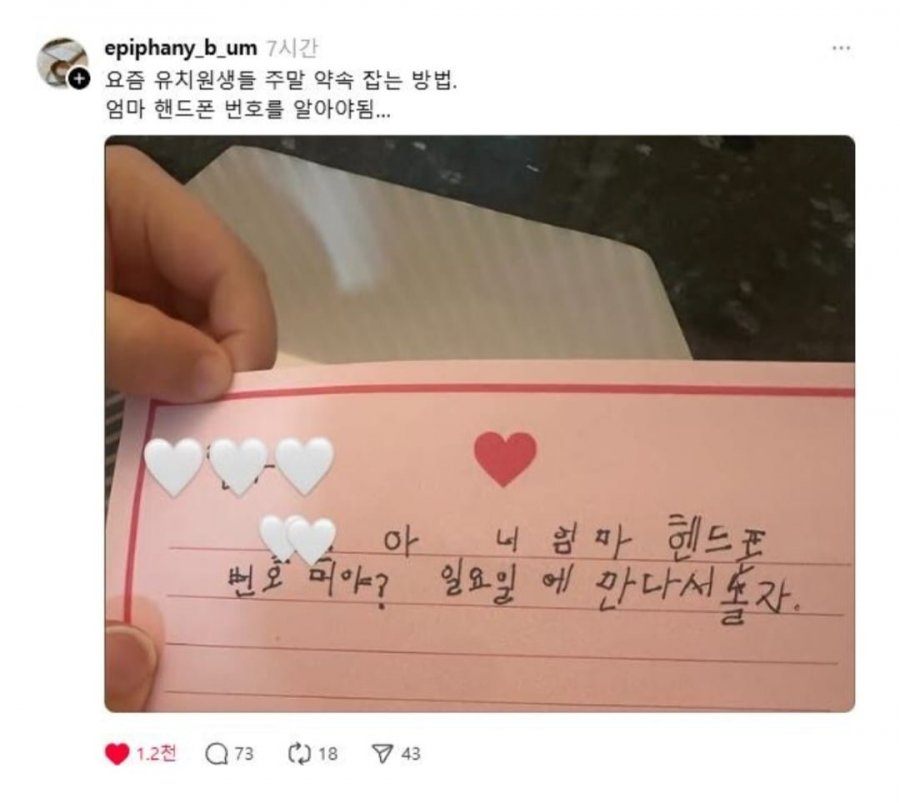 epiphany_b_um 7시간
요즘 유치원생들 주말 약속 잡는 방법.
엄마 핸드폰 번호를 알아야됨...
아 너 엄마 헨드폰
번호 머야? 일요일에 만나서 놀자.
1.2천 73 18 43